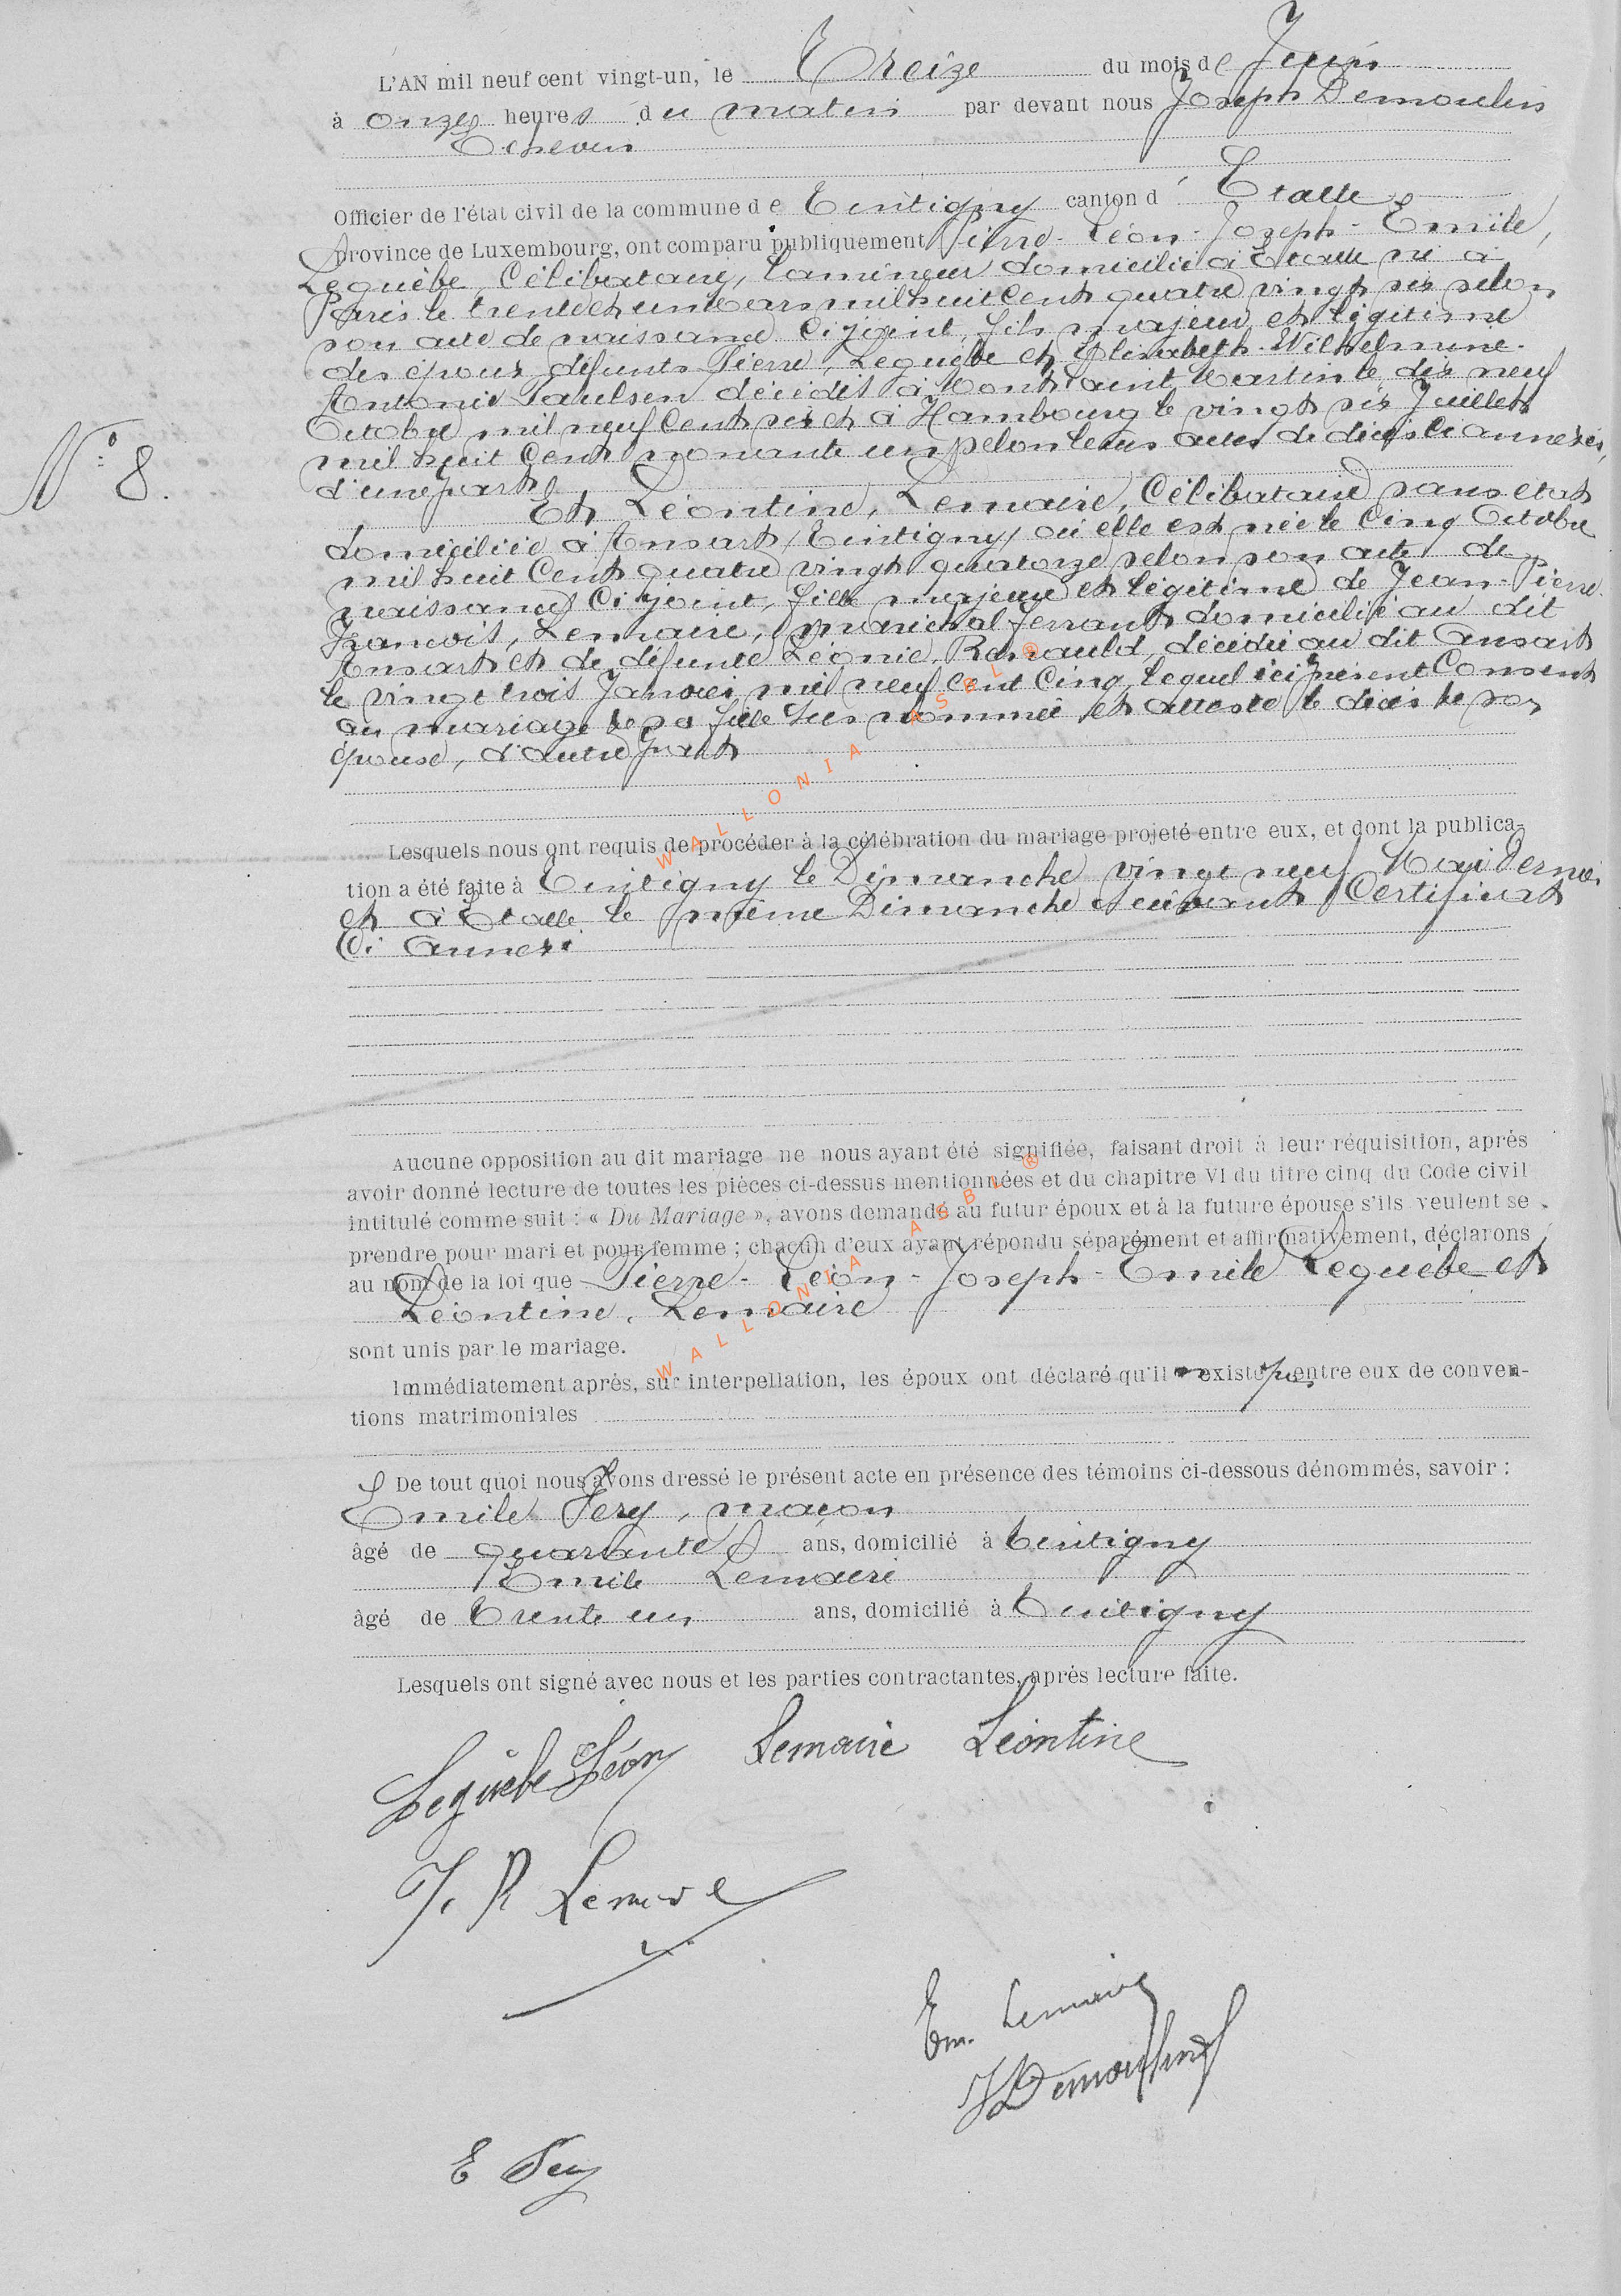 L'AN mil neuf cent vingt-un, le Treize du mois de Juin
à onze heures du matin par devant nous Joseph Demoulin
Echevin
Officier de l'état civil de la commune de Tintigny canton d'Etalle
province de Luxembourg, ont comparu publiquement Pierre-Léon-Joseph-Emile,
Leguèbe, Célibataire, lamineur domicilié à Etalle né à
Paris le trente et un Mars mil huit Cent quatre vingt six selon
son acte de naissance Ci joint, fils majeur et légitime
des époux défunts Pierre, Leguèbe et Elisabeth-Wilhelmine-
Antonie Paulsen décédés à Mont Saint Martin le dix neuf
Octobre mil neuf Cent six et à Hambourg le vingt six Juillet
mil huit Cent nonante un selon leurs actes de décès ci annexés,
d'une part
N° 8.
Et Léontine, Lemaire, Célibataire sans etat
domiciliée à Ansart (Tintigny) où elle est née le Cinq Octobre
mil huit Cent quatre vingt quatorze selon son acte de
naissance Ci joint, fille majeure et légitime de Jean-Pierre
François, Lemaire, maréchal ferrant domicilié au dit
Ansart et de défunte Léonie, Renauld, décédée au dit Ansart
le vingt trois Janvier mil neuf Cent Cinq, lequel ici présent Consent
au mariage de sa fille sus nommée et atteste le décès de son
épouse, d'autre part
Lesquels nous ont requis de procéder à la célébration du mariage projeté entre eux, et dont la publica-
tion a été faite à Tintigny le Dimanche vingt neuf Mai dernier
et à Etalle le même Dimanche suivant Certificat
Ci annexé
Aucune opposition au dit mariage ne nous ayant été signifiée, faisant droit à leur réquisition, après
avoir donné lecture de toutes les pièces ci-dessus mentionnées et du chapitre VI du titre cinq du Code civil
intitulé comme suit : « Du Mariage », avons demandé au futur époux et à la future épouse s'ils veulent se
prendre pour mari et pour femme ; chacun d'eux ayant répondu séparément et affirmativement, déclarons
au nom de la loi que Pierre-Léon-Joseph-Emile Leguèbe et
Léontine, Lemaire
sont unis par le mariage.
Immédiatement après, sur interpellation, les époux ont déclaré qu'il n'existe pas entre eux de conven-
tions matrimoniales
De tout quoi nous avons dressé le présent acte en présence des témoins ci-dessous dénommés, savoir :
Emile Fery, maçon
âgé de quarante ans, domicilié à Tintigny
Emile Lemaire
âgé de Trente un ans, domicilié à Tintigny
Lesquels ont signé avec nous et les parties contractantes, après lecture faite.
Leguèbe Léon Lemaire Léontine
J. P. Lemaire
Em. Lemaire
J Demoulin
E Fery
WALLONIA ASBL ®
WALLONIA ASBL ®